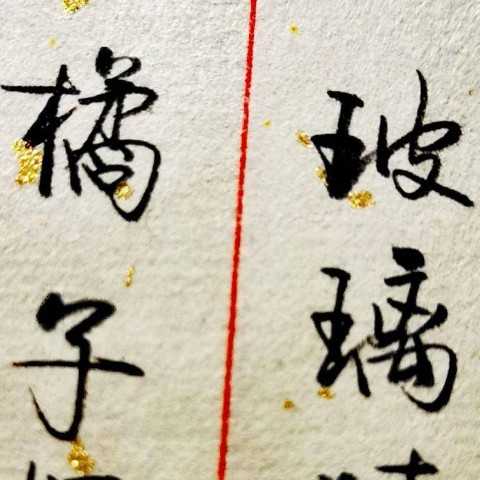 玻璃
橘子